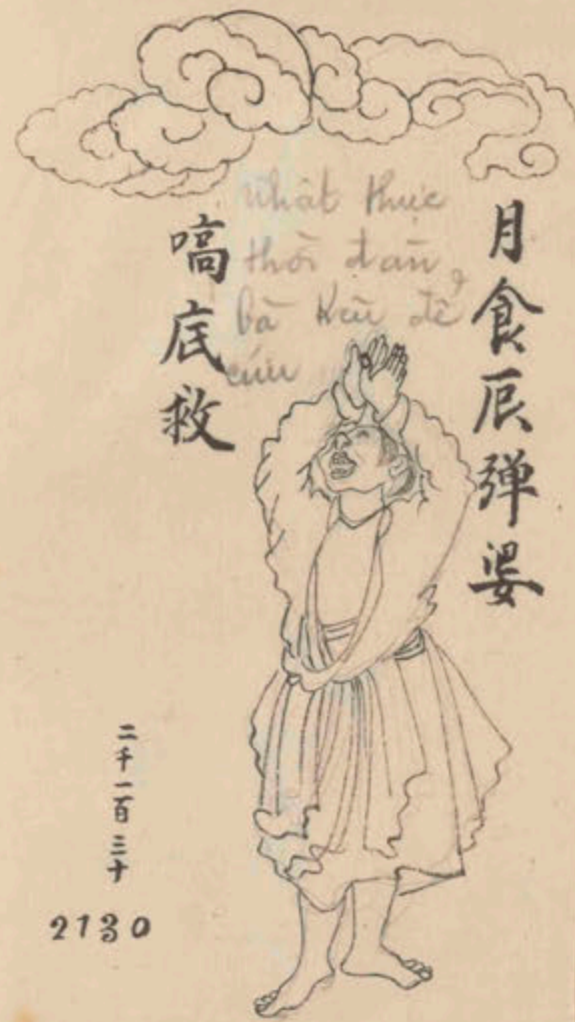 月食辰弾婆
嗃底救
Nhật thực
thời đàn
bà kêu để
cứu
二千一百三十
2130